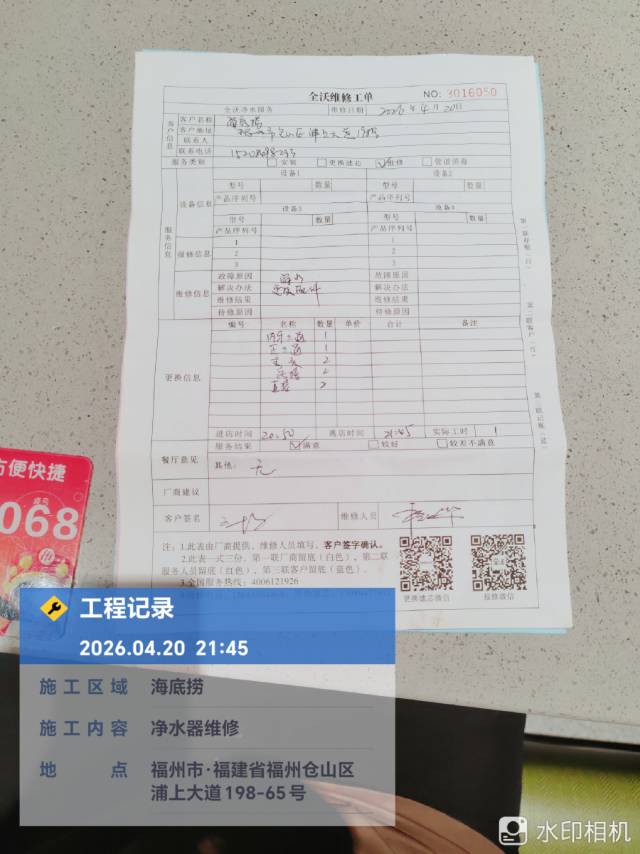 全沃维修工单
NO: 3016050
全沃净水服务 维修日期 2026年4月20日
客户信息
客户名称 海底捞
客户地址
联系人
联系电话
服务类别 安装 更换滤芯 ✓维修 管道消毒
服务信息
设备信息
设备1 设备2
型号 数量 型号 数量
产品序列号 产品序列号
设备3 设备4
型号 数量 型号 数量
产品序列号 产品序列号
维修信息
1 1
2 2
3 3
维修信息
故障原因 漏水 故障原因
解决办法 更换配件 解决办法
维修结果 维修结果
待修原因 待修原因
更换信息
编号 名称 数量 单价 合计 备注
1
1
2
2
直接 2
进店时间 20:50 离店时间 21:45 实际工时 1
服务结果 ✓满意 较好 较差不满意
餐厅意见 其他: 无
厂商建议
客户签名 维修人员
注:1.此表由厂商提供,维修人员填写,客户签字确认。
2.此表一式三份,第一联厂商留底(白色),第二联
服务人员留底(红色),第三联客户留底(蓝色)。
3.全国服务热线:4006121926
更换滤芯微信 报修微信
方便快捷
068
工程记录
2026.04.20 21:45
施工区域 海底捞
施工内容 净水器维修
地点 福州市·福建省福州仓山区
浦上大道198-65号
水印相机